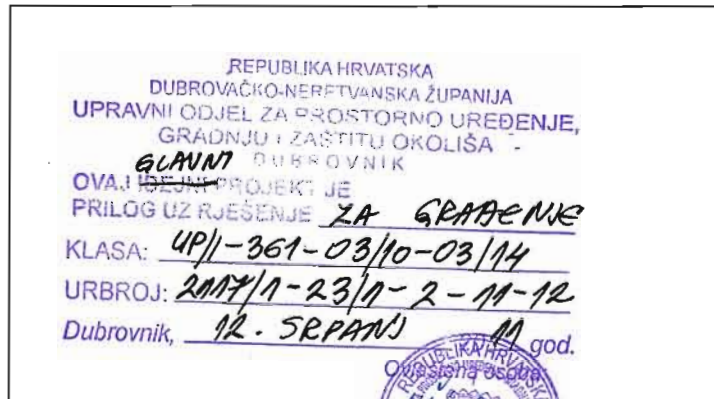 REPUBLIKA HRVATSKA
DUBROVAČKO-NERETVANSKA ŽUPANIJA
UPRAVNI ODJEL ZA PROSTORNO UREĐENJE,
GRADNJU I ZAŠTITU OKOLIŠA -
DUBROVNIK
GLAVNI
OVAJ IDEJNI PROJEKT JE
PRILOG UZ RJEŠENJE ZA GRAĐENJE
KLASA: UP/I-361-03/10-03/14
URBROJ: 2117/1-23/1-2-11-12
Dubrovnik, 12. SRPANJ 11 god.
Ovlaštena osoba:
REPUBLIKA HRVATSKA